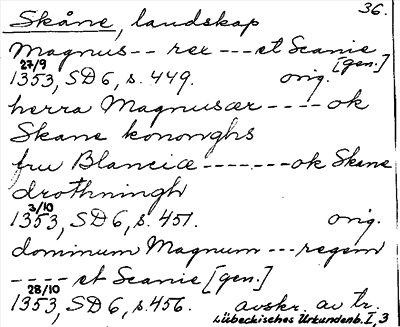 36.
Skåne, landskap
Magnus -- rex --- et Scanie
[gen.]
27/9
1353, SD 6, s. 449. orig.
herra Magnusær ---- ok
Skane kononghs
fru Blanciæ ------- ok Skane
drothningh
3/10
1353, SD 6, s. 451. orig.
dominum Magnum --- regem
---- et Scanie [gen.]
28/10
1353, SD 6, s. 456. avskr. av tr.
Lübeckisches Urkundenb. I, 3